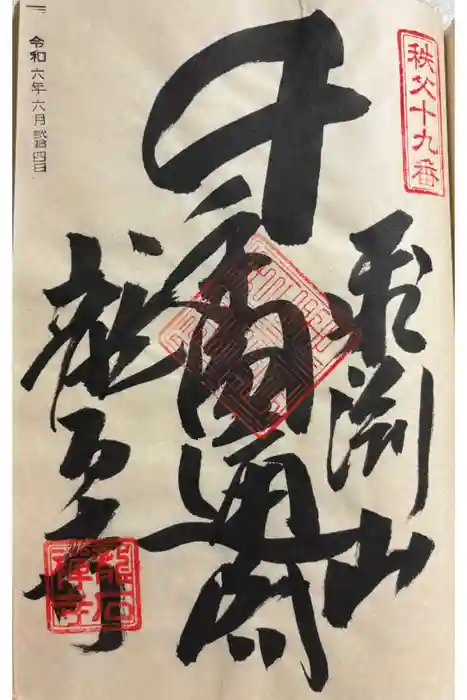 秩父十九番
飛淵山
千手圓通閣
龍石寺
龍石
禪寺
令和六年六月弐拾四日